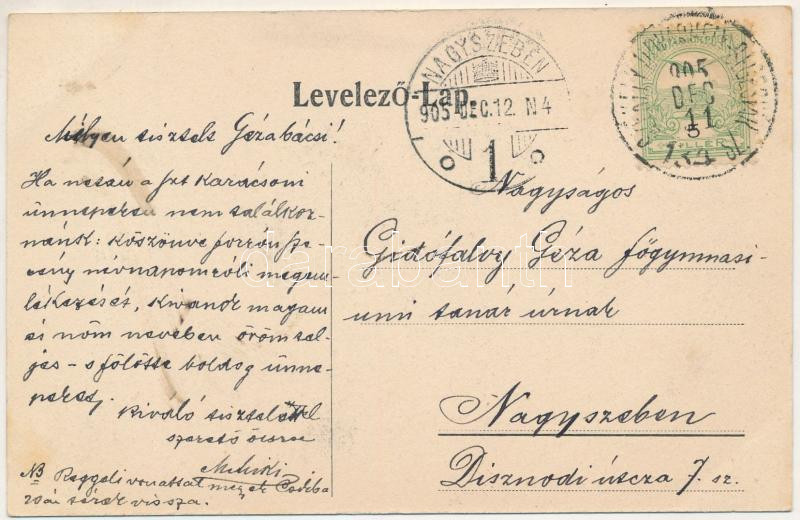 Levelező-Lap.
NAGYSZEBEN
905 DEC.12 N4
1
905
DEC
11
5
FILLÉR
Mélyen tisztelt Géza bácsi!
Ha netán a szt Karácsoni
ünnepeken nem találkoz-
nánk: köszönve forrón sze-
rény névnapomróli megem-
lékezését, kivánok magam
és nőm nevében örömtel-
jes - s fölötte boldog ünne-
peket.
Kiváló tisztelettel
szerető öcscse
Miki
NB Reggeli vonattal megyek
vissza.
Nagyságos
Gidófalvy Géza főgymnasi-
umi tanár úrnak
Nagyszeben
Disznodi útcza 7. sz.
darabanth